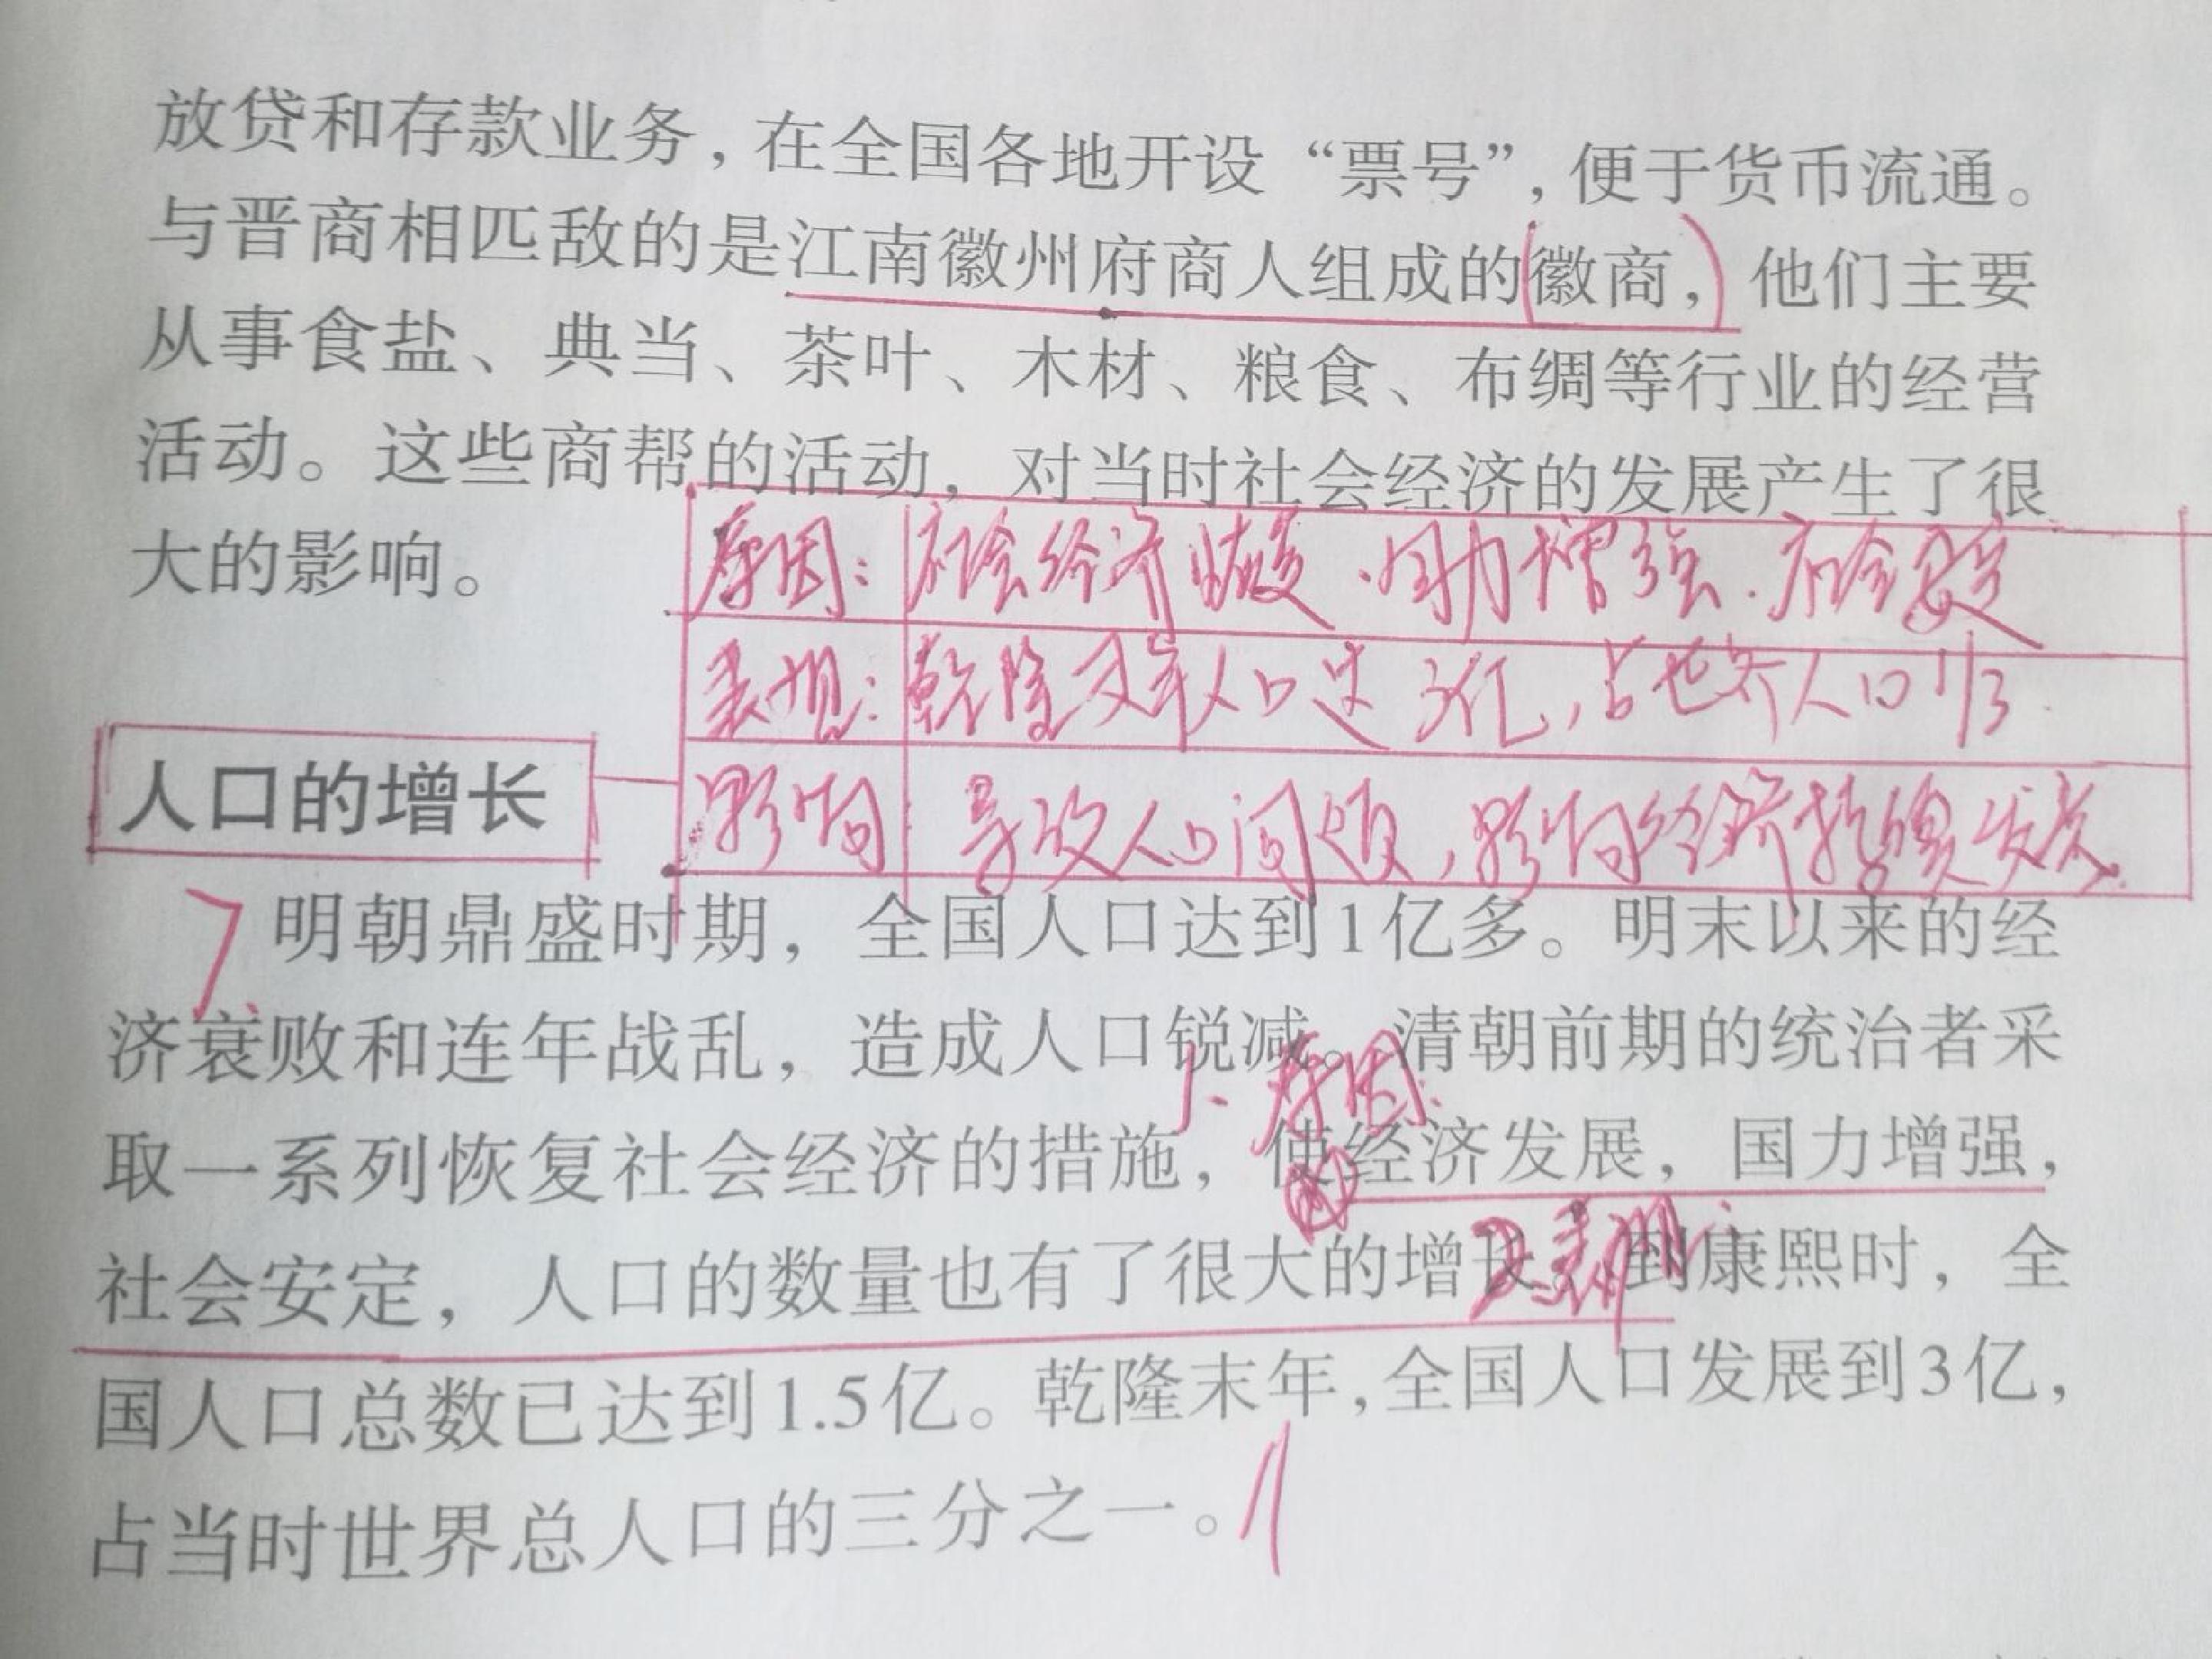 放贷和存款业务，在全国各地开设“票号”，便于货币流通。
与晋商相匹敌的是江南徽州府商人组成的(徽商，)他们主要
从事食盐、典当、茶叶、木材、粮食、布绸等行业的经营
活动。这些商帮的活动，对当时社会经济的发展产生了很
大的影响。
原因：社会经济恢复、国力增强、社会安定
表现：乾隆末年人口达3亿，占世界人口1/3
影响：导致人口问题，影响经济持续发展。
人口的增长
明朝鼎盛时期，全国人口达到1亿多。明末以来的经
济衰败和连年战乱，造成人口锐减。清朝前期的统治者采
1、原因：
取一系列恢复社会经济的措施，使经济发展，国力增强，
2表现：
社会安定，人口的数量也有了很大的增长。到康熙时，全
国人口总数已达到1.5亿。乾隆末年，全国人口发展到3亿，
占当时世界总人口的三分之一。